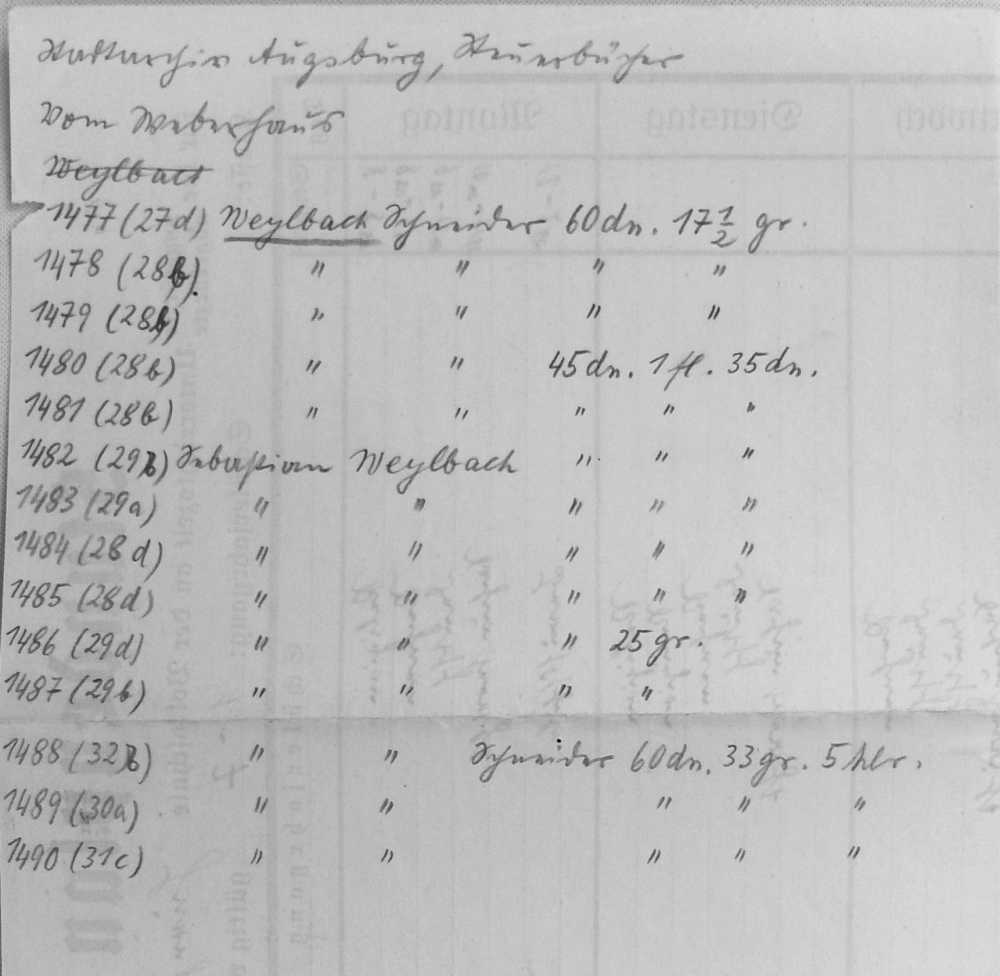 Stadtarchiv Augsburg, Steuerbücher
Vom Weberhaus
Weylbach
1477 (27d) Weylbach Schneider 60 dn. 17 1/2 gr.
1478 (28b). " " " "
1479 (28b) " " " "
1480 (28b) " " 45 dn. 1 fl. 35 dn.
1481 (28b) " " " " "
1482 (29b) Sebastian Weylbach " " "
1483 (29a) " " " " "
1484 (28d) " " " " "
1485 (28d) " " " " "
1486 (29d) " " " 25 gr.
1487 (29b) " " " "
1488 (32b) " " Schneider 60 dn. 33 gr. 5 hlr.
1489 (30a) " " " " "
1490 (31c) " " " " "
Montag
Dienstag